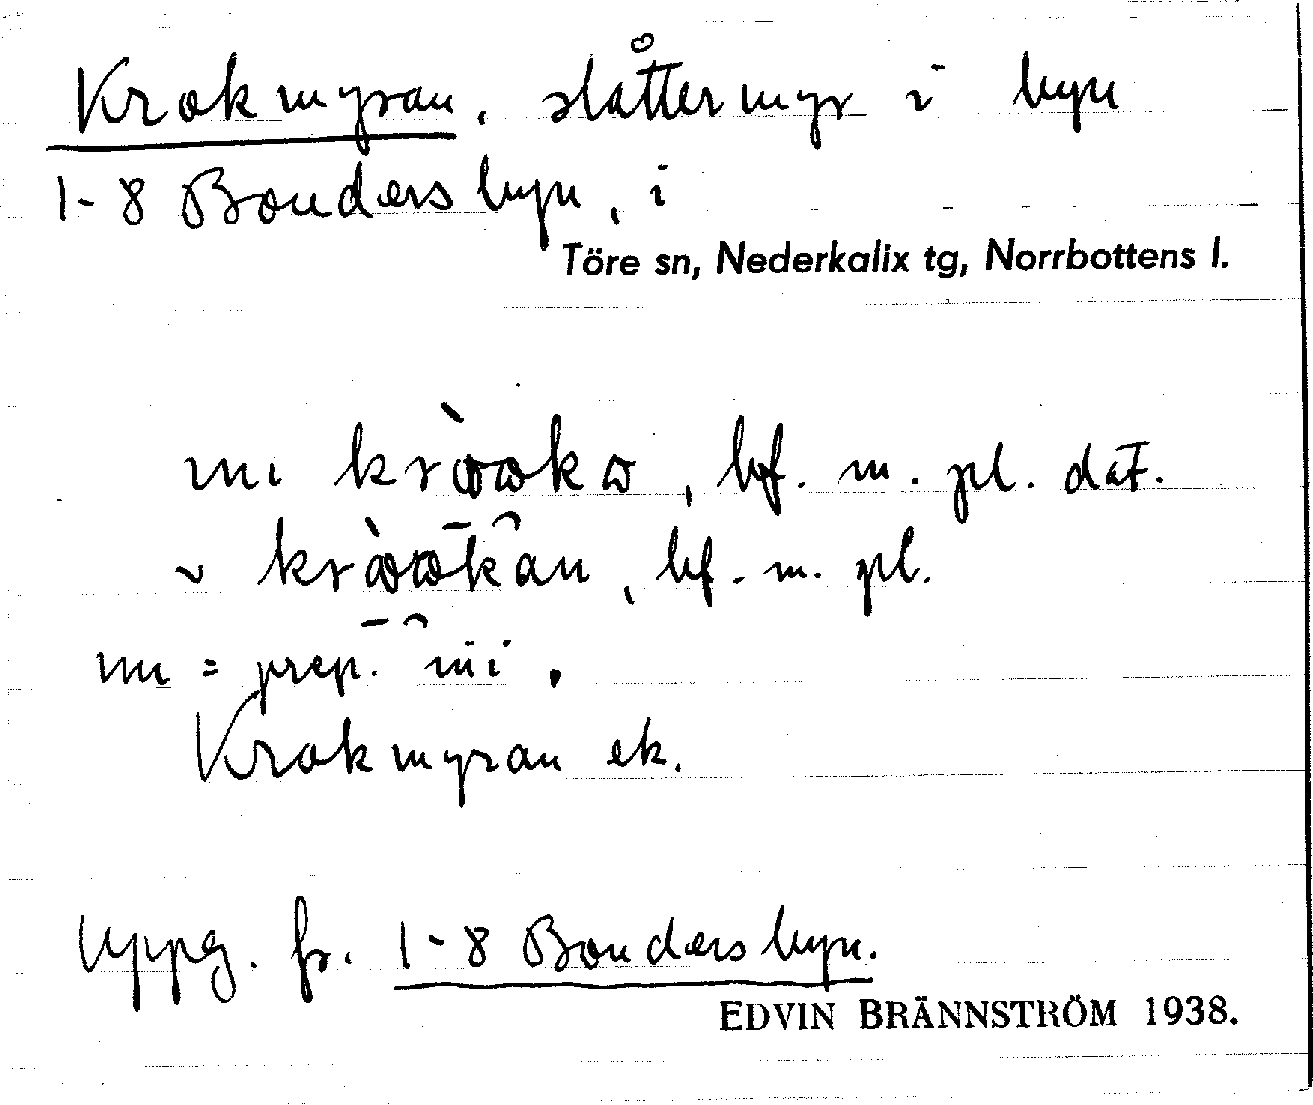 Krokmyran, slåttermyr i byn
1-8 Bondersbyn, i
Töre sn, Nederkalix tg, Norrbottens l.
bf. m. pl. dat.
bf. m. pl.
= prep.
Krokmyran ek.
Uppg. fr. 1-8 Bondersbyn.
EDVIN BRÄNNSTRÖM 1938.